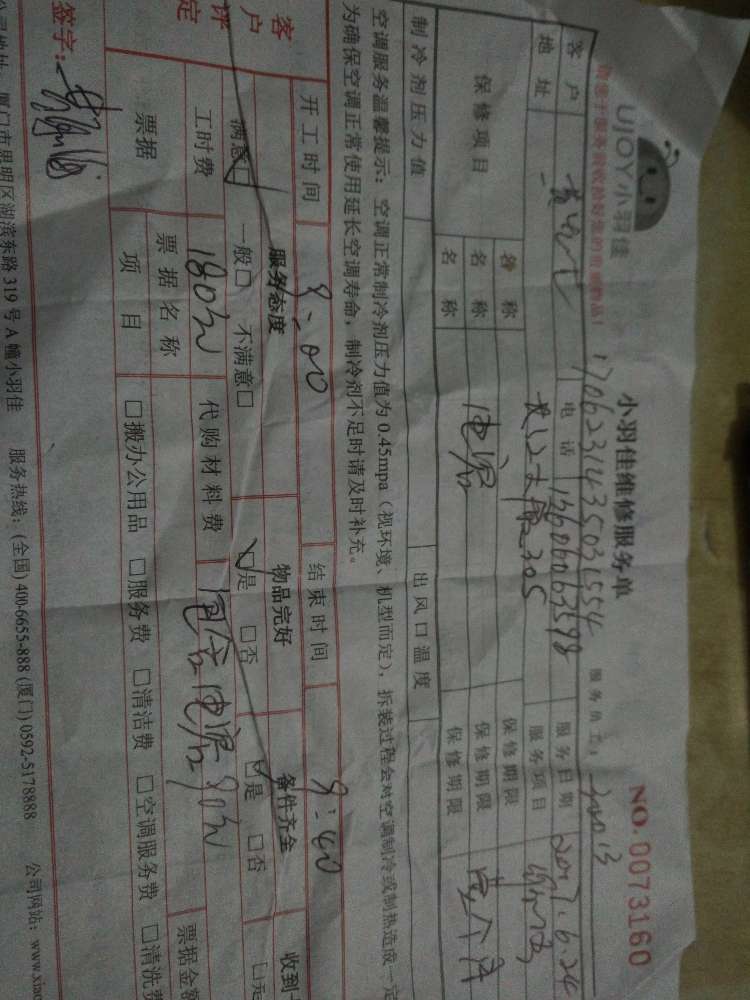 UJOY小羽佳
小羽佳维修服务单
NO. 0073160
17062314350031554
服务员工:
客户
电话 13606063598
服务日期 2017.6.24
地址
305
服务项目
保修项目
名称
保修期限
名称
保修期限
名称 电容
保修期限 壹个月
制冷剂压力值
出风口温度
空调服务温馨提示:空调正常制冷剂压力值为 0.45mpa(视环境、机型而定),拆装过程会对空调制冷或制热造成一定
为确保空调正常使用延长空调寿命,制冷剂不足时请及时补充。
开工时间 9:00
结束时间 9:40
客户评定
服务态度
物品完好
备件齐全
收到
满意□ 一般□ 不满意□
□是 □否
□是 □否
□是
工时费 180元
代购材料费 包含电容90元
票据
票据名称
票据金额
项目
□搬办公用品 □服务费 □清洁费 □空调服务费 □清洗费
签字:
公司地址: 厦门市思明区湖滨东路 319 号 A 幢小羽佳
服务热线:(全国) 400-6655-888 (厦门) 0592-5178888
公司网站:www.xiao